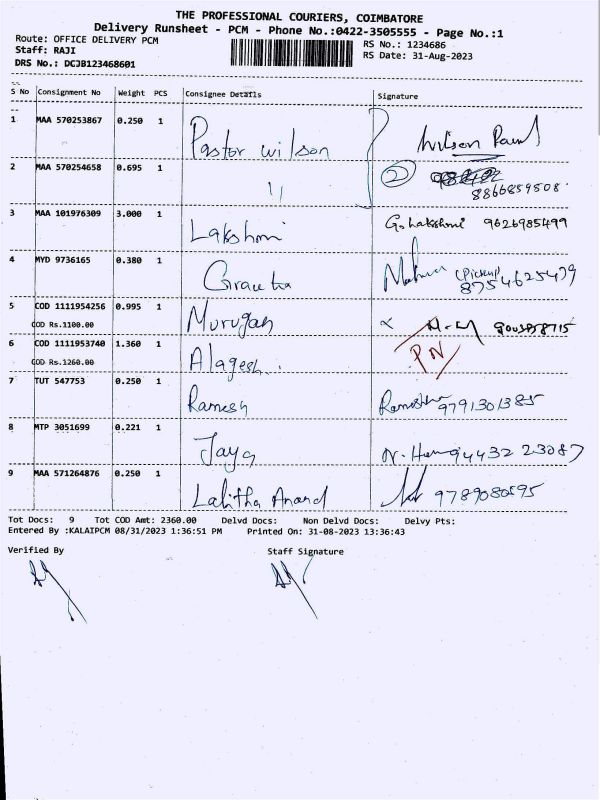 THE PROFESSIONAL COURIERS, COIMBATORE
Delivery Runsheet - PCM - Phone No.:0422-3505555 - Page No.:1
Route: OFFICE DELIVERY PCM
RS No.: 1234686
Staff: RAJI
RS Date: 31-Aug-2023
DRS No.: DCJB123468601
S No Consignment No Weight PCS Consignee Details Signature
1 MAA 570253867 0.250 1 Pastor wilson Wilson Paul
2 MAA 570254658 0.695 1 11 2 8866859508
3 MAA 101976309 3.000 1 Lakshmi G. Lakshmi 9626985499
4 MYD 9736165 0.380 1 (Pickup) 8754625479
5 COD 1111954256 0.995 1 Murugan
COD Rs.1100.00
6 COD 1111953740 1.360 1 Alagesh. PN
COD Rs.1260.00
7 TUT 547753 0.250 1 Ramesh 9791301385
8 MTP 3051699 0.221 1 Jaya N. 9443223087
9 MAA 571264876 0.250 1 Lalitha Anand 9789080595
Tot Docs: 9 Tot COD Amt: 2360.00 Delvd Docs: Non Delvd Docs: Delvy Pts:
Entered By :KALAIPCM 08/31/2023 1:36:51 PM Printed On: 31-08-2023 13:36:43
Verified By Staff Signature